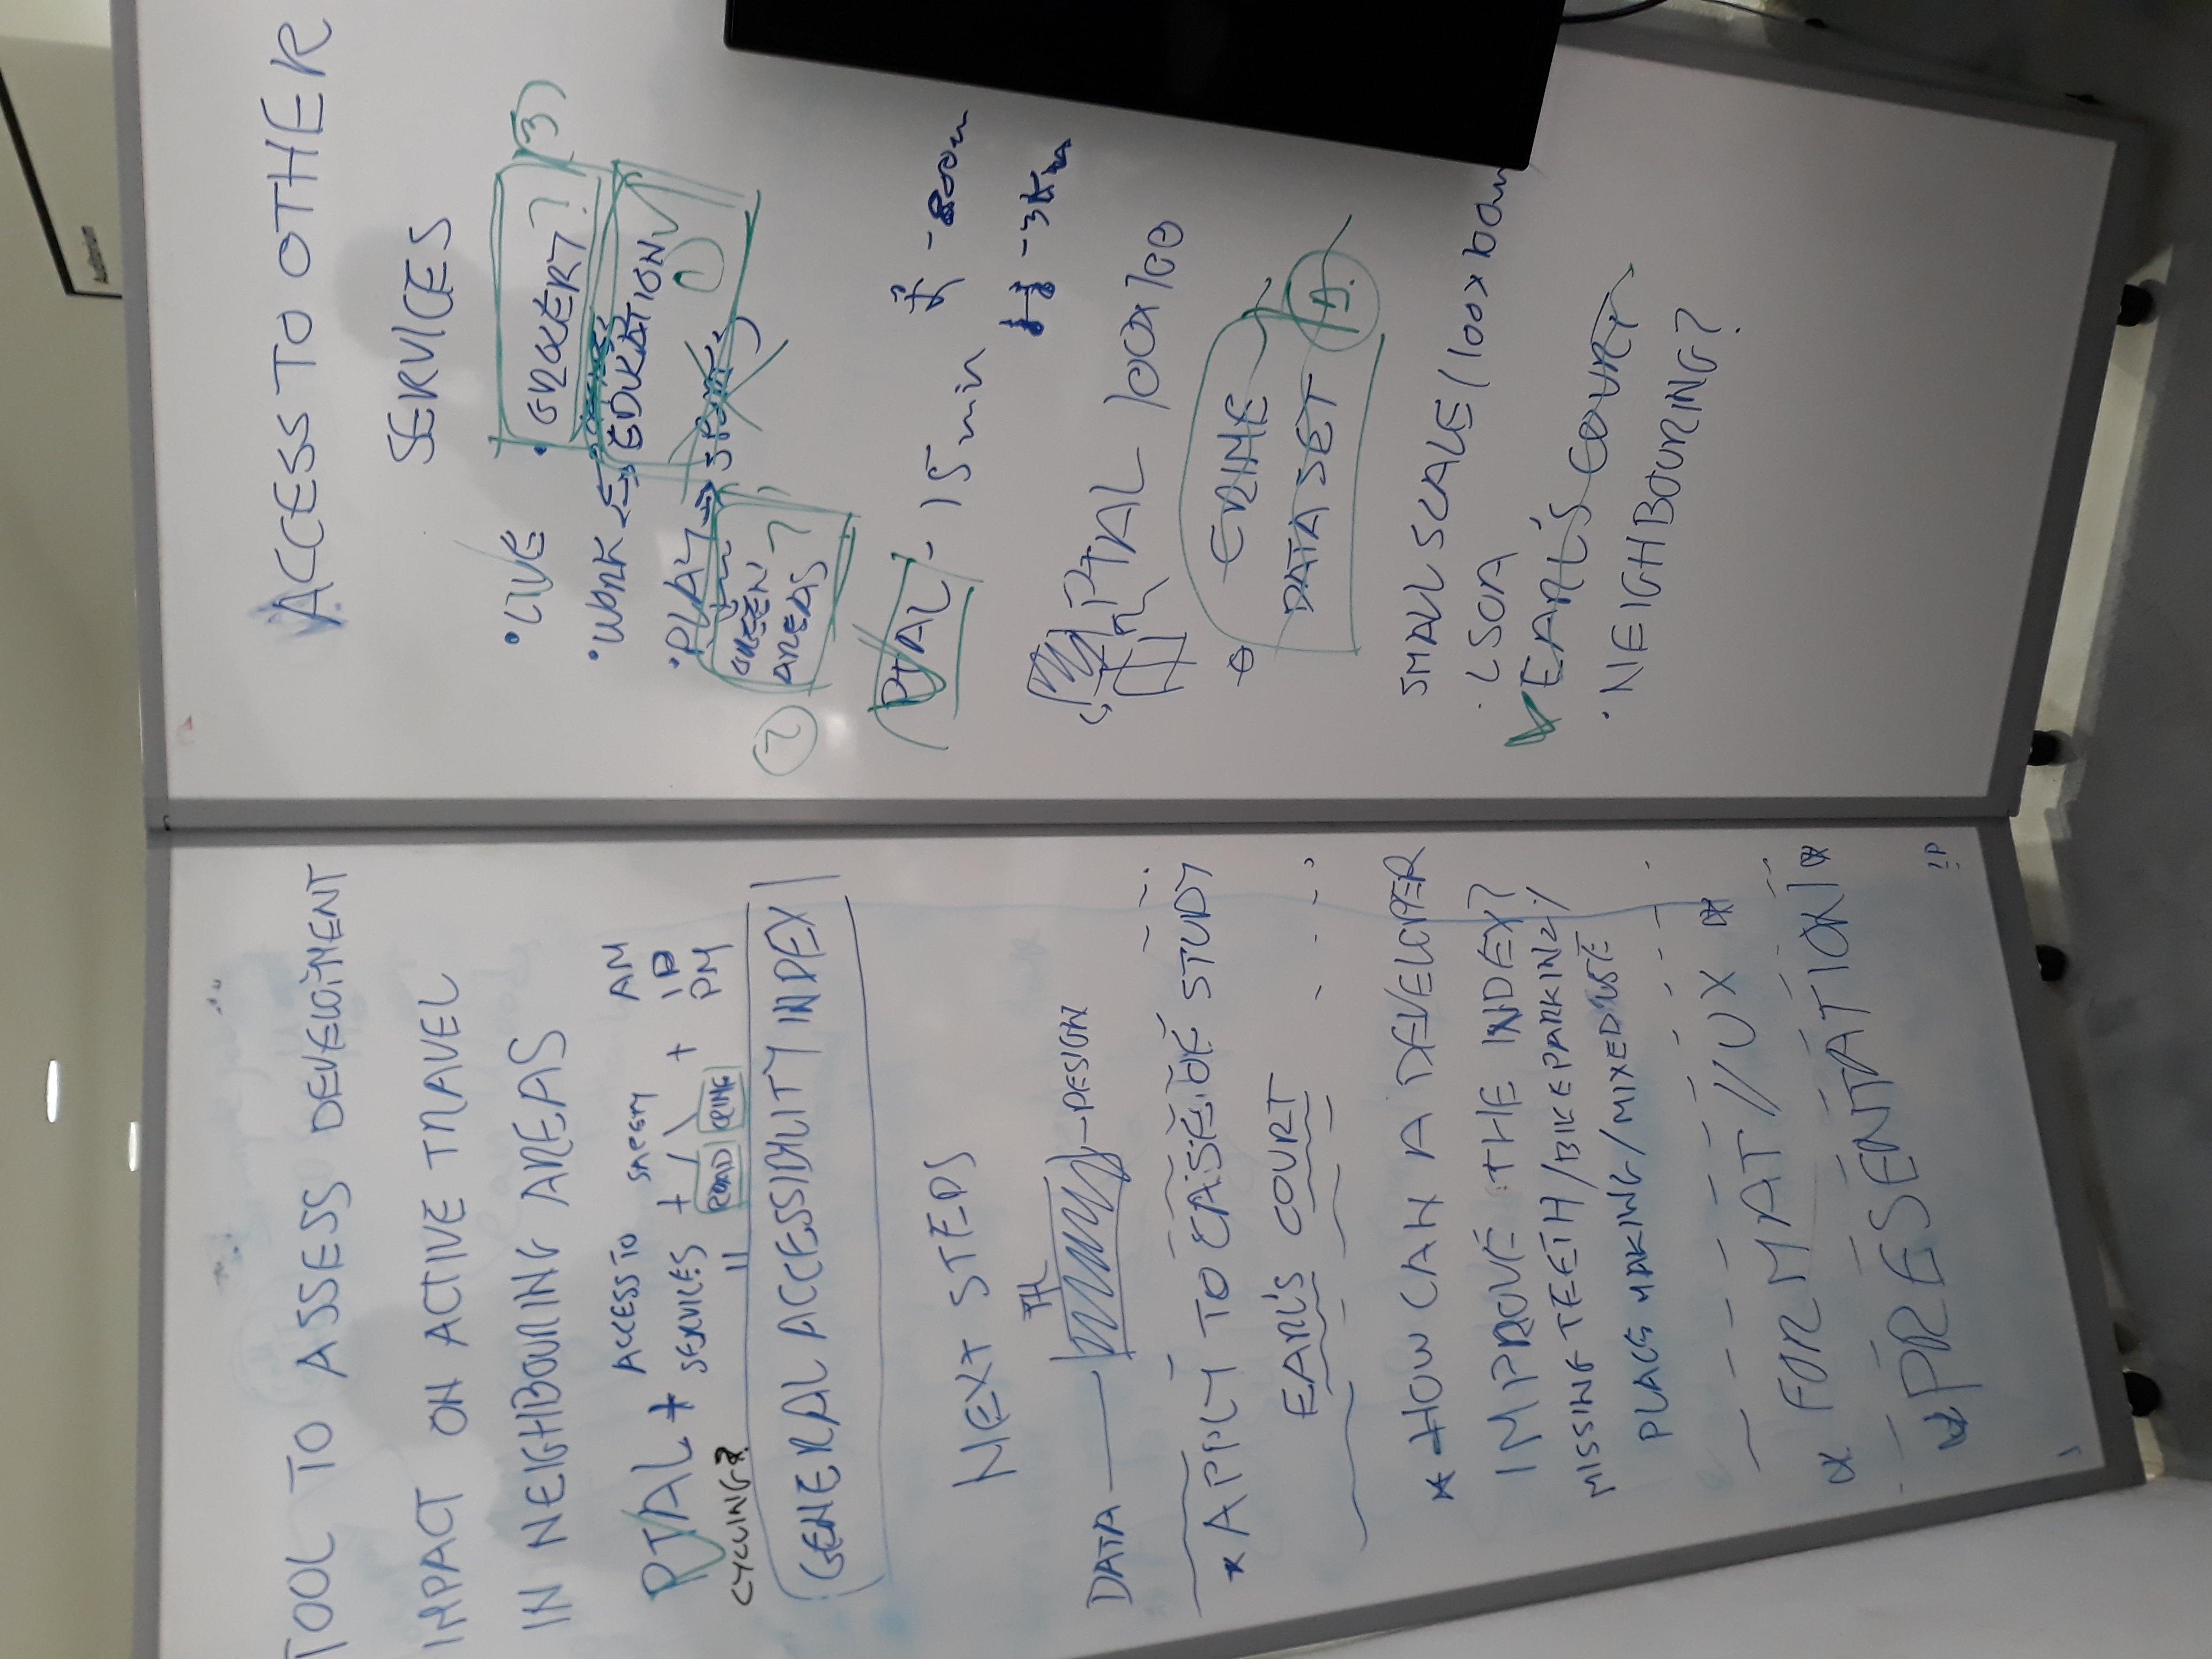 Auditorium
TOOL TO ASSESS DEVELOPMENT
IMPACT ON ACTIVE TRAVEL
IN NEIGHBOURING AREAS
PTAL + ACCESS TO SERVICES + SAFETY + AM IP PM
ROAD CRIME
CYCLING?
GENERAL ACCESSIBILITY INDEX
NEXT STEPS
TFL
DATA — DESIGN
* APPLY TO CASE OF STUDY
EARL'S COURT
* HOW CAN A DEVELOPER
IMPROVE THE INDEX?
MISSING TEETH / BIKE PARKING /
PLACE MAKING / MIXED USE
* FORMAT // UX *
PRESENTATION *
ACCESS TO OTHER
SERVICES
• LIVE
• GROCERY? (3)
• WORK
EDUCATION ✓ 1
• PLAY →
GREEN
AREAS ?
2
PTAL - 15 min
- 800m
- 3Km
PTAL 100x100
CRIME
DATA SET
SMALL SCALE / 100x100m
· LSOA
✓ EARL'S COURT
· NEIGHBOURING?